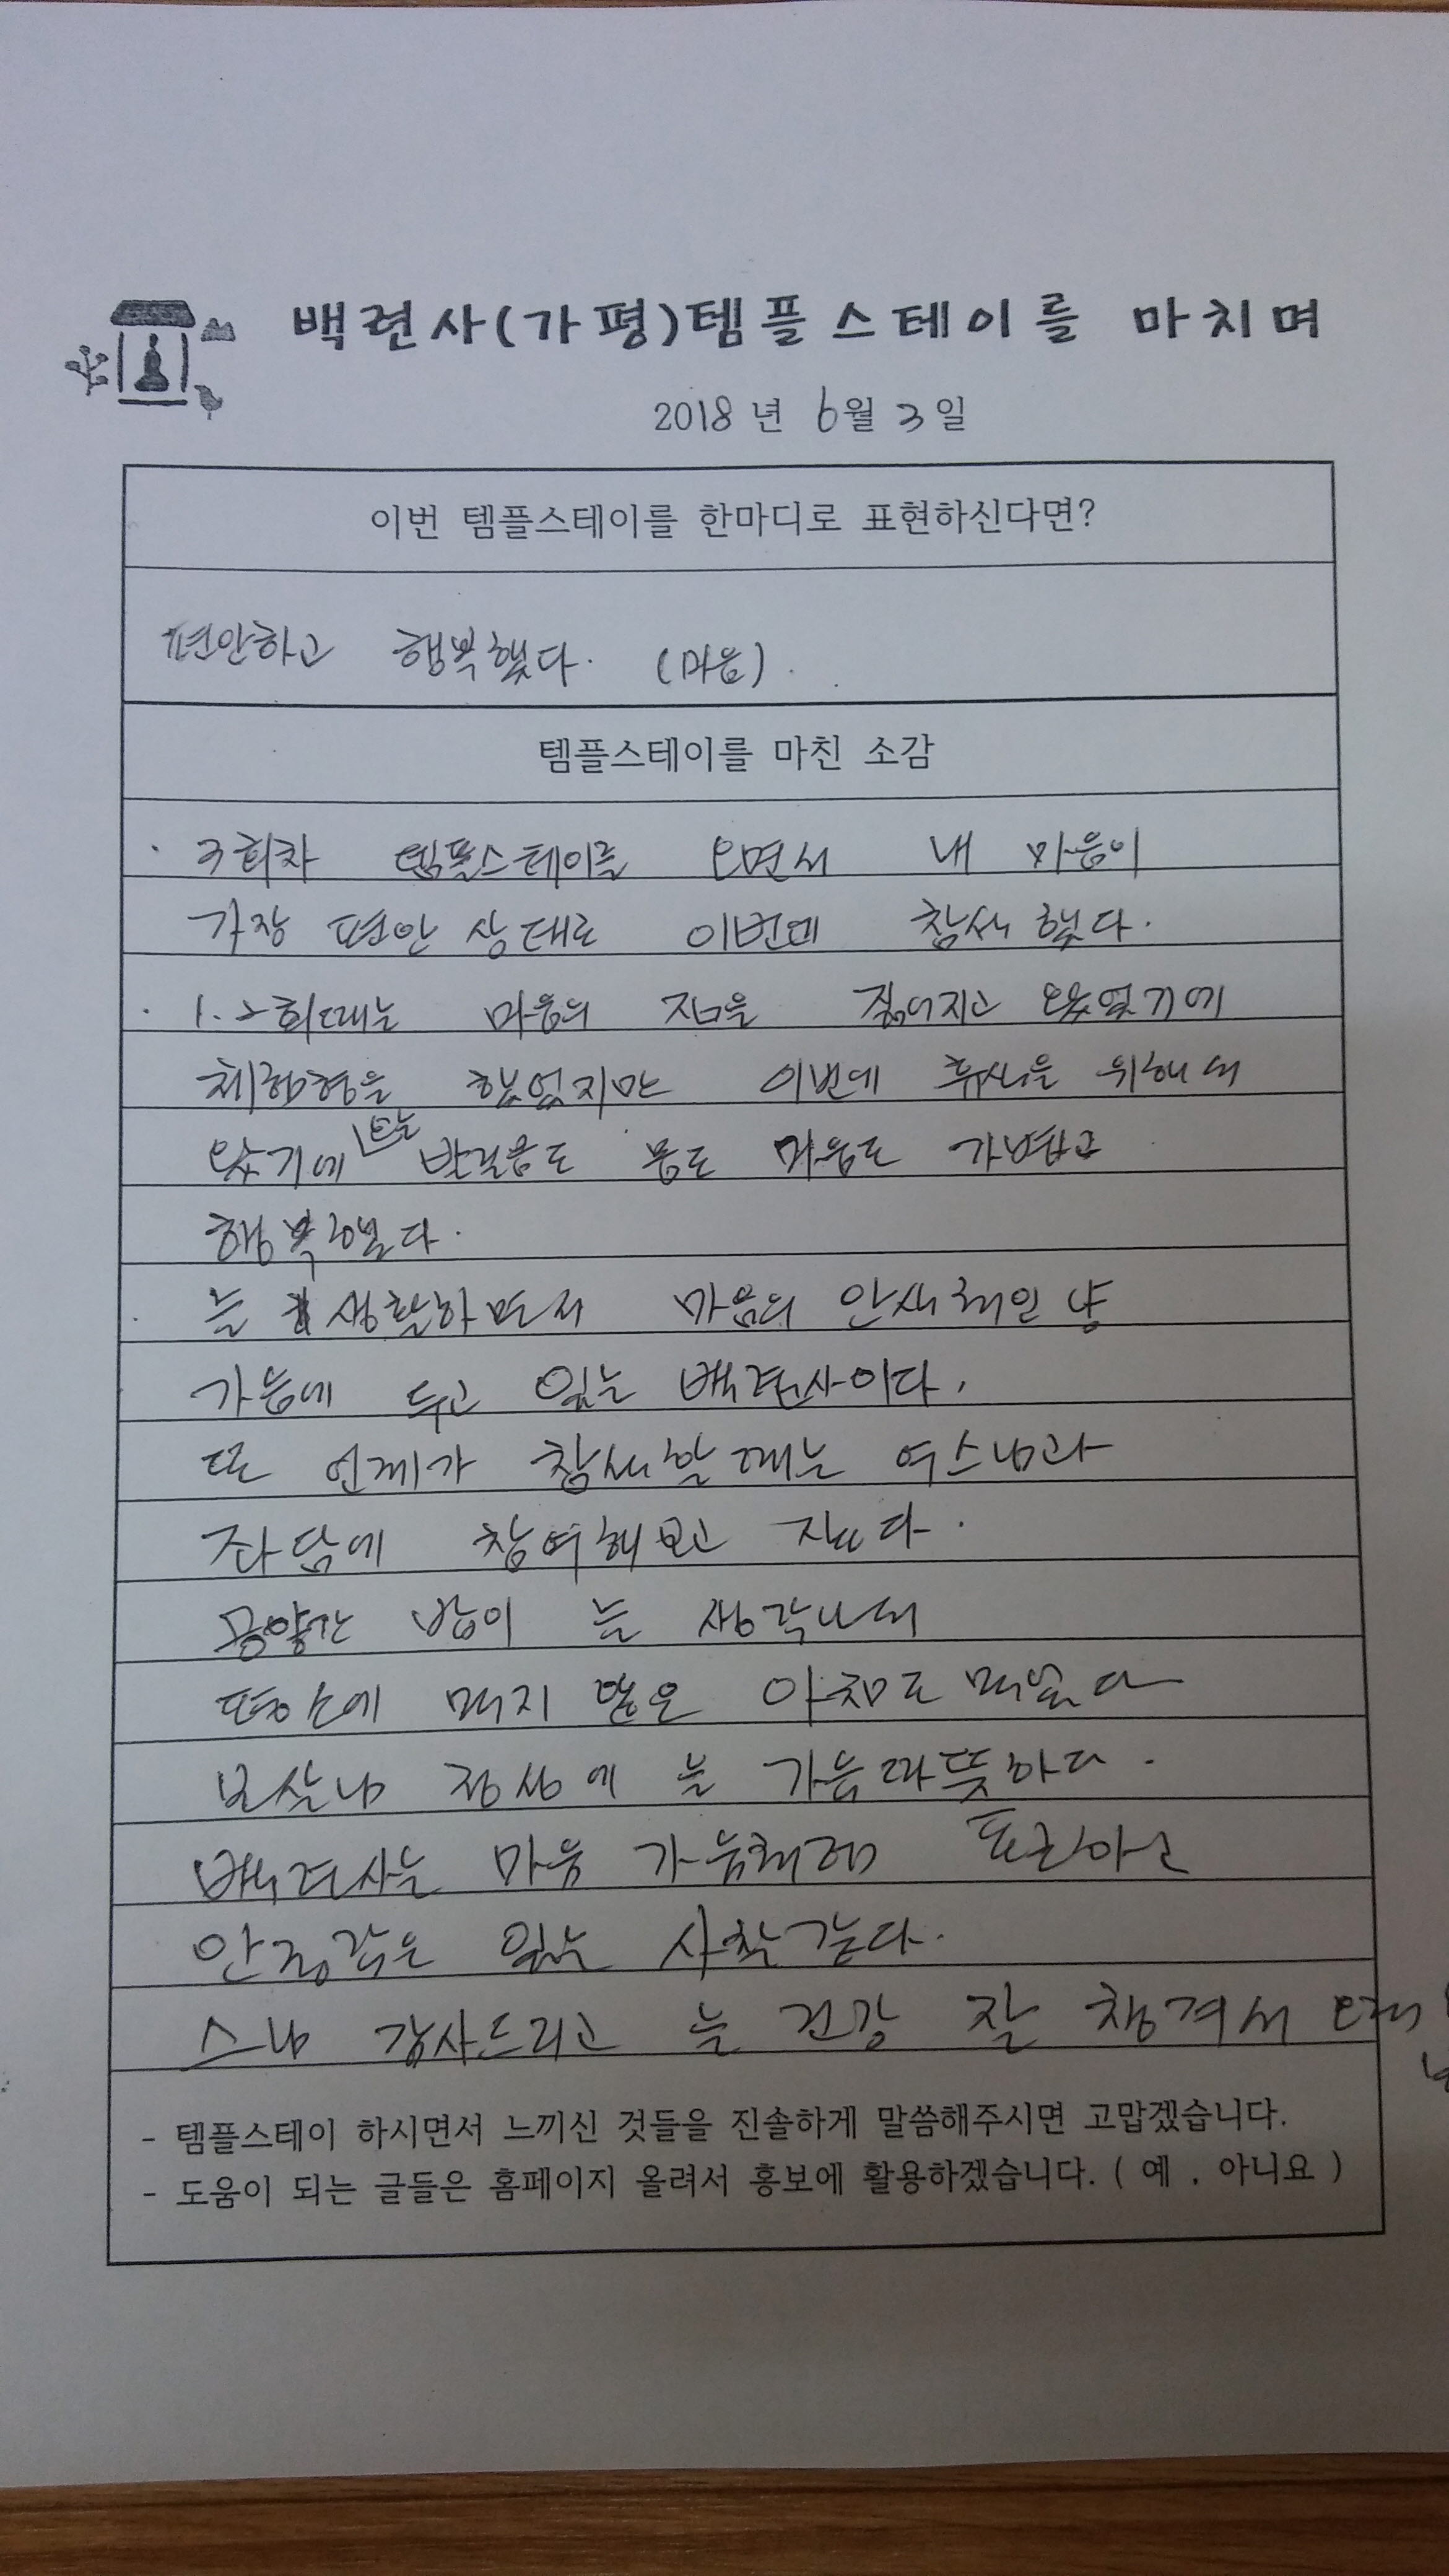 백련사(가평)템플스테이를 마치며
2018년 6월 3일
이번 템플스테이를 한마디로 표현하신다면?
편안하고 행복했다. (마음).
템플스테이를 마친 소감
· 3회차 템플스테이를 오면서 내 마음이
가장 편안 상태로 이번에 참석했다.
· 1.2회때는 마음의 짐을 짊어지고 왔었기에
체험형을 했었지만 이번에 휴식을 위해서
왔기에 오는 발걸음도 몸도 마음도 가볍고
행복했다.
· 늘 생활하면서 마음의 안식처인 냥
가슴에 두고 있는 백련사이다.
또 언제가 참석할때는 여스님과
좌담에 참여해보고 싶다.
공양간 밥이 늘 생각나서
평소에 먹지 않은 아침도 먹었다
보살님 정성에 늘 가슴따뜻하다.
백련사는 마음 가슴처럼 포근하고
안정감은 있는 사찰같다.
스님 감사드리고 늘 건강 잘 챙겨서
- 템플스테이 하시면서 느끼신 것들을 진솔하게 말씀해주시면 고맙겠습니다.
- 도움이 되는 글들은 홈페이지 올려서 홍보에 활용하겠습니다. ( 예 , 아니요 )